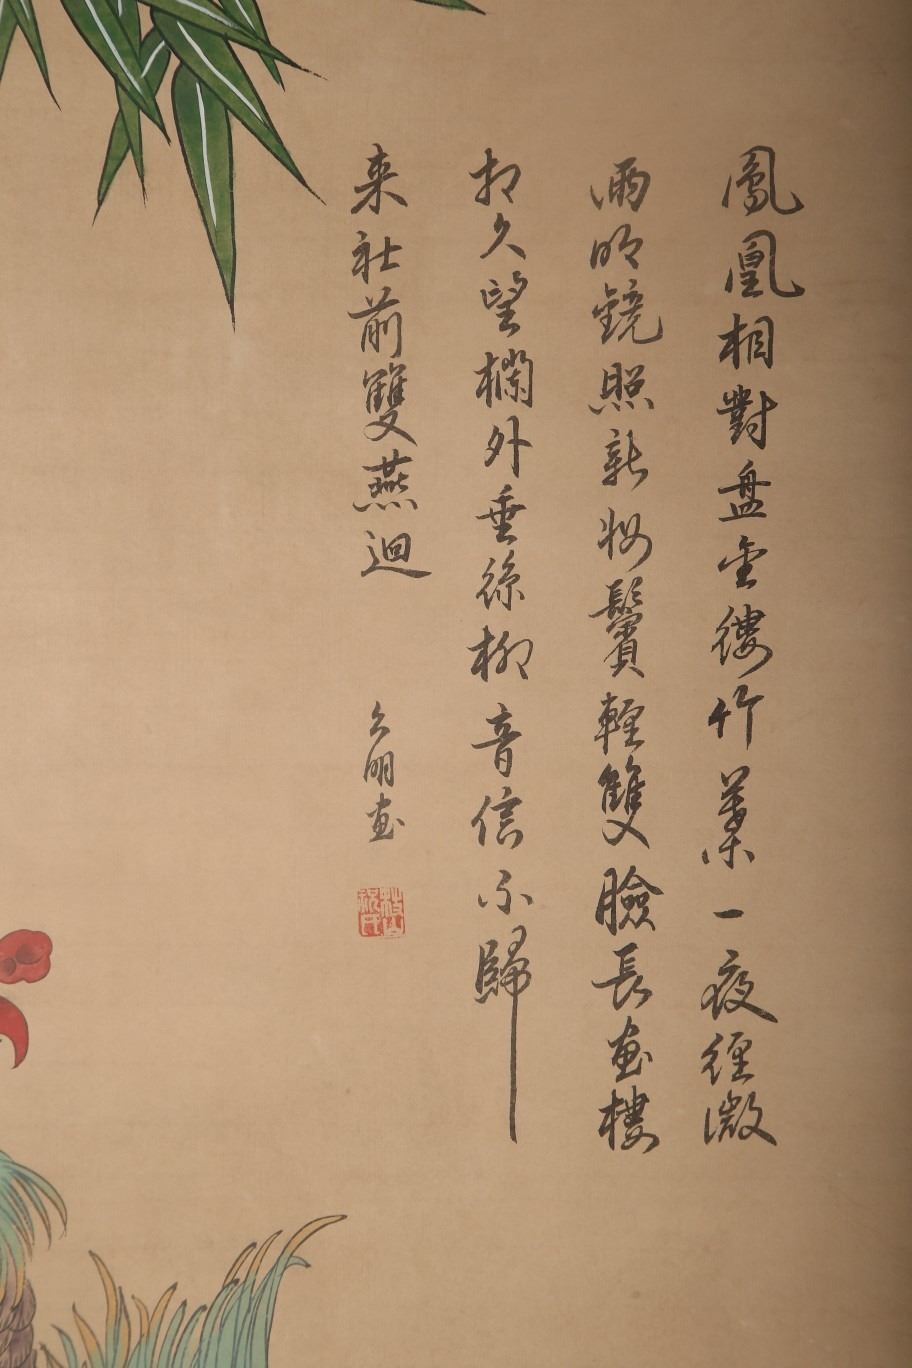 鳳凰相對盘金縷竹葉一夜經微
雨明鏡照新妝鬢輕雙臉長画樓
相久望欄外垂絲柳音信不歸
来社前雙燕迴
允明画
枝山
祝氏